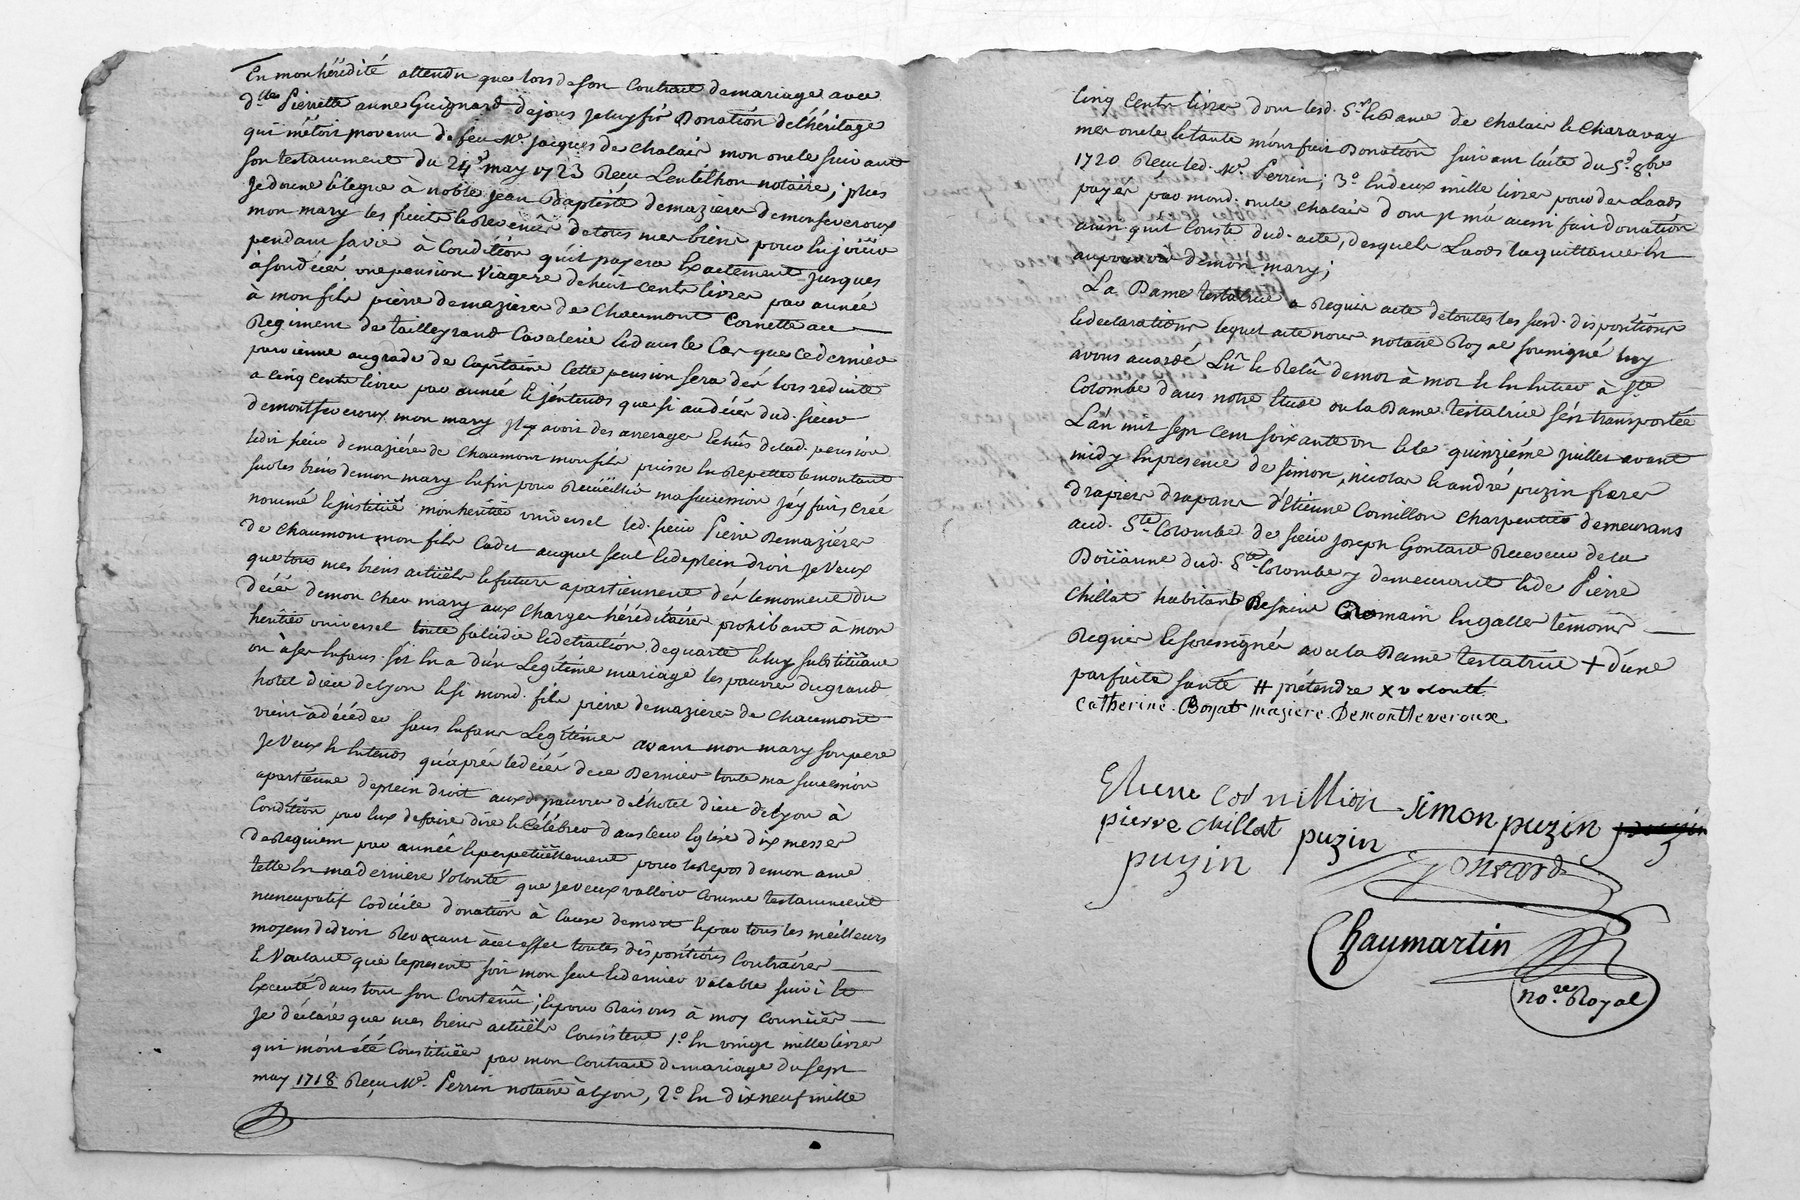 En mon hérédité attendu que lors de son Contract de mariage avec
d.lle Pierrette anne Guignard dejous je luy fis Donation de l'héritage
qui m'étoit provenu de feu Mr. Jacques de Chalais mon oncle suivant
son testament du 24e may 1723 Reçu Lentilhon notaire; plus
Je donne & legue à noble Jean Baptiste demazieres demonseveroux
mon mary les fruits & Revenûs de tous mes biens pour En joüir
pendant sa vie à Condition qu'il payera Exactement jusques
à son décés une pension viagere de huit cents livres par année
à mon fils pierre demazieres de Chaumont Cornette au
Regiment de tailleyrand Cavalerie & dans le Cas que ce dernier
parvienne au grade de Capitaine Cette pension sera dès lors reduite
a cinq cents livres par année & j'entends que si au décés dud. sieur
demontseveroux mon mary jl y avoit des arrerages Echûs de lad. pension
ledit sieur demaziéres de Chaumont mon fils puisse En Repetter le montant
sur les biens de mon mary Enfin pour Recüeillir ma succession j'ay fait, créé
nommé & jnstitüé mon héritier universel led. sieur Pierre Demaziéres
de Chaumont mon fils Cadet auquel seul & de plein droit je veux
que tous mes biens actüels & futurs apartiennent dés le moment du
décés de mon cher mary aux Charges héréditaires prohibant à mon
héritier universel toute falcidie & detraction de quarte & luy substitüant
ou à ses Enfans s'il En a d'un Legitime mariage les pauvres du grand
hotel dieu de Lyon & si mond. fils pierre demazieres de Chaumont
vient à décéder sans Enfans Legitimes avant mon mary son pere
je veux & Entends qu'aprés le décés de ce Dernier toute ma succession
apartienne de plein droit auxd. pauvres de l'hotel dieu de Lyon à
Condition par Eux de faire dire & Célébrer dans leur Eglise dix messes
de Requiem par année & perpetüellement pour le Repos de mon ame
telle En ma derniere volonté que je veux valloir comme testament
nuncupatif codicile donation à Cause de mort & par tous les meilleurs
moyens de droit Revocant à cet effet toutes dispositions Contraires
& voulant que le present soit mon seul & dernier valable suivi &
Executé dans tout son Contenû; & pour Raisons à moy connües
Je déclare que mes biens actüels Consistent 1.o En vingt mille livres
qui m'ont été Constitüés par mon Contract de mariage du sept
may 1718 Reçu Mr. Perrin notaire à Lyon, 2.o En dix neuf mille
Cinq Cents livres dont lesd. Sr. & Dame de Chalais & Charavay
mes oncle & tante m'ont fait Donation suivant l'acte du 5e. 8bre
1720 Reçu led. Mr. Perrin; 3.o En deux mille livres pour des Laods
payés par mond. oncle Chalais dont jl m'a aussi fait donation
ainsi qu'il Conste dud. acte, desquels Laods la quittance En
au pouvoir de mon mary;
La Dame testatrice a Requis acte de toutes les susd. dispositions
& declarations lequel acte nous notaire Royal soussigné luy
avons accordé Lû & Relû de mot à mot & En Entier à Ste.
Colombe dans notre Etude ou la Dame testatrice s'est transportée
L'an mil sept cent soixante un & le quinziéme juillet avant
midy En presence de simon, nicolas & andré puzin freres
drapiers drapans d'Etienne Cornillon Charpentier demeurans
aud. Ste. Colombe de sieur joseph Gontard Receveur de la
Doüanne dud. Ste. Colombe y demeurant & de Pierre
Chillat habitant De saint Romain Engalles témoins
Requis & soussignés avec la Dame testatrice + d'une
parfaite santé # prétendre x volonté
Catherine. Boyat masiere. Demontleveroux
Etiene Cornillion Simon puzin puzin
pierre Chillat puzin
puzin Gontard
Chaumartin
no.re Royal